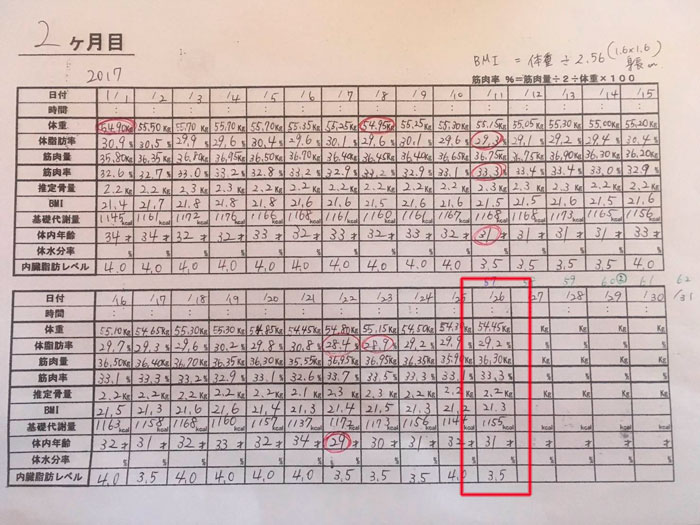 2ヶ月目
BMI = 体重 ÷ 2.56 (1.6×1.6) 身長 m
2017
筋肉率 %=筋肉量÷2÷体重×100
日付 1/1 1/2 1/3 1/4 1/5 1/6 1/7 1/8 1/9 1/10 1/11 1/12 1/13 1/14 1/15
時間 : : : : : : : : : : : : : : :
体重 54.90Kg 55.50Kg 55.70Kg 55.70Kg 55.70Kg 55.35Kg 55.25Kg 54.95Kg 55.25Kg 55.30Kg 55.15Kg 55.05Kg 55.30Kg 55.00Kg 55.20Kg
体脂肪率 30.9% 30.5% 29.9% 29.6% 30.4% 29.6% 30.1% 29.6% 30.1% 29.6% 29.3% 29.1% 29.2% 29.4% 30.4%
筋肉量 35.80Kg 36.35Kg 36.95Kg 36.50Kg 36.70Kg 36.40Kg 36.45Kg 36.40Kg 36.65Kg 36.75Kg 36.75Kg 36.90Kg 36.30Kg 36.20Kg
筋肉率 32.6% 32.7% 33.0% 33.2% 32.8% 33.2% 32.9% 33.2% 32.9% 33.1% 33.3% 33.4% 33.4% 33.0% 32.9%
推定骨量 2.2Kg 2.2Kg 2.3Kg 2.3Kg 2.2Kg 2.2Kg 2.2Kg 2.2Kg 2.2Kg 2.2Kg 2.3Kg 2.3Kg 2.2Kg 2.2Kg 2.2Kg
BMI 21.4 21.7 21.8 21.8 21.8 21.6 21.6 21.5 21.6 21.6 21.5 21.5 21.6 21.5 21.6
基礎代謝量 1145kcal 1161kcal 1172kcal 1176kcal 1166kcal 1168kcal 1161kcal 1160kcal 1161kcal 1167kcal 1168kcal 1168kcal 1173kcal 1165kcal 1156kcal
体内年齢 34才 34才 32才 32才 33才 32才 33才 32才 33才 32才 31才 31才 31才 31才 33才
体水分率 % % % % % % % % % % % % % % %
内臓脂肪レベル 4.0 4.0 4.0 4.0 4.0 4.0 4.0 4.0 4.0 4.0 3.5 3.5 3.5 3.5 4.0
57 59 60 61 62
日付 1/16 1/17 1/18 1/19 1/20 1/21 1/22 1/23 1/24 1/25 1/26 1/27 1/28 1/29 1/30 1/31
時間 : : : : : : : : : : : : : : :
体重 55.10Kg 54.65Kg 55.30Kg 55.30Kg 54.85Kg 54.45Kg 54.80Kg 55.15Kg 54.50Kg 54.3 Kg 54.45Kg Kg Kg Kg Kg
体脂肪率 29.7% 29.3% 29.6% 30.2% 29.8% 30.8% 28.4% 28.9% 29.2% 29.9% 29.2% % % % %
筋肉量 36.50Kg 36.40Kg 36.70Kg 36.35Kg 36.30Kg 35.55Kg 36.95Kg 36.95Kg 36.35Kg 35.9 Kg 36.30Kg Kg Kg Kg Kg
筋肉率 33.1% 33.3% 33.2% 32.9% 33.1% 32.6% 33.7% 33.5% 33.3% 33.1% 33.3% % % % %
推定骨量 2.2Kg 2.2Kg 2.2Kg 2.2Kg 2.2Kg 2.1Kg 2.3Kg 2.3Kg 2.2Kg 2.2Kg 2.2Kg Kg Kg Kg Kg
BMI 21.5 21.3 21.6 21.6 21.4 21.3 21.4 21.5 21.3 21.2 21.3
基礎代謝量 1163kcal 1158kcal 1168kcal 1160kcal 1157kcal 1137kcal 1173kcal 1156kcal 1144kcal 1155kcal kcal kcal kcal kcal
体内年齢 32才 31才 32才 33才 32才 34才 29才 30才 31才 32才 31才 才 才 才 才
体水分率 % % % % % % % % % % % % % % %
内臓脂肪レベル 4.0 3.5 4.0 4.0 4.0 4.0 3.5 3.5 3.5 4.0 3.5